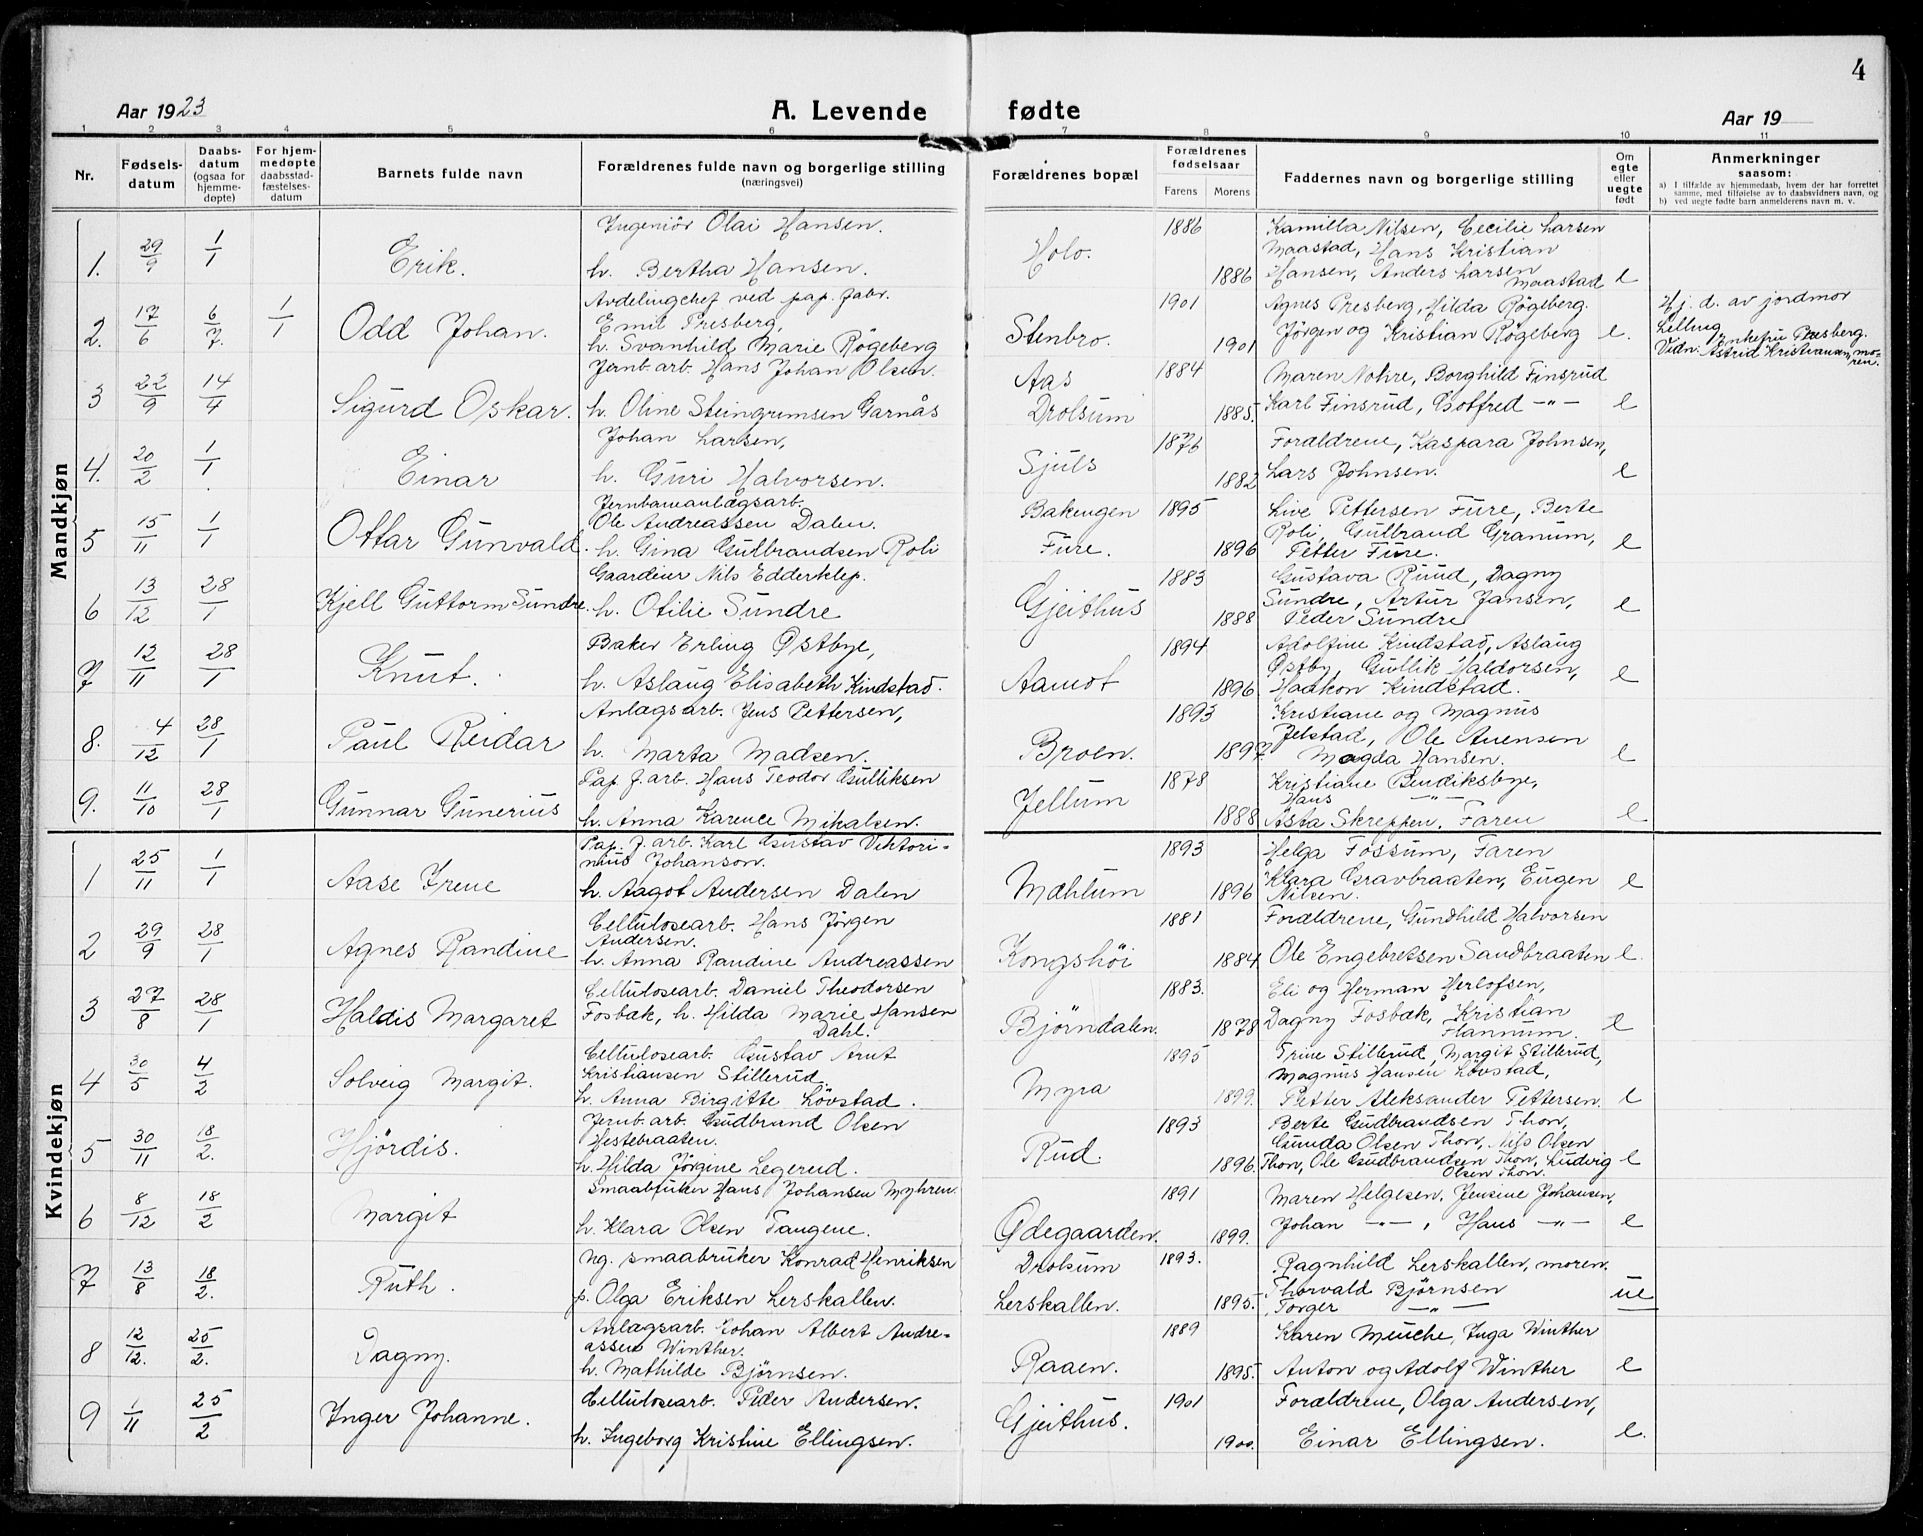 4
Aar 1923 A. Levende fødte Aar 19
1 2 3 4 5 6 7 8 9 10 11
Nr. Fødsels-datum Daabs-datum (ogsaa for hjemme-døpte) For hjem-medøpte daabsstad-fæstelses-datum Barnets fulde navn Forældrenes fulde navn og borgerlige stilling (næringsvei) Forældrenes bopæl Forældrenes fødselsaar Farens Morens Faddernes navn og borgerlige stilling Om egte eller uegte født Anmerkninger saasom:
a) I tilfælde av hjemmedaab, hvem der har forrettet samme, med tilføielse av to daabsvidners navn, og
b) ved uegte fødte barn anmelderens navn m. v.
Mandkjøn
Ingeniör Olai Hansen. 1886 Kamilla Nilsen, Cecilie Larsen
1. 29/9 1/1 Erik. h. Bertha Hansen. Holo. 1886 Maastad, Hans Kristian
Hansen, Anders Larsen
Maastad e
Avdelingchef ved pap. fabr. 1901 Agnes Presberg, Hilda Røgeberg. Hj. d. av jordmor
2. 17/6 6/7. 1/1 Odd Johan. Emil Presberg, Stenbro. Jørgen og Kristian Røgeberg e. Lelling
h. Svanhild Marie Røgeberg 1901 Vidn: Enkefru Presberg. Astrid Kristiansen, mo-ren.
Jernb. arb. Hans Johan Olsen. Aas 1884 Maren Nohre, Borghild Finsrud
3 22/9 14/4 Sigurd Oskar. h. Oline Steingrimsen Garnås Drolsum 1885. Karl Finsrud, Gotfred -"- e
Johan Larsen, 1876 Forældrene, Kaspara Johnsen,
4. 20/2 1/1 Einar h. Guri Halvorsen. Sjuls 1882 Lars Johnsen. e
Jernbaneanlægsarb. Bakengen 1895 Live Pettersen Fure, Berte
5 15/11 1/1 Ottar Gunvald. Ole Andreassen Dalen. Roli, Gulbrand Granum,
h. Gina Gulbrandsen Roli Fure. 1896 Petter Fure. e
Gaardeier Nils Edderklep. 1883 Gustava Ruud, Dagny
6 13/12 28/1 Kjell Guttorm Sundre. h. Otilie Sundre Gjeithus 1888 Sundre, Artur Jansen,
Peder Sundre e
Baker Erling Østbye, 1894 Adolfine Kindstad, Aslaug
7 12/11 28/1 Knut. h. Aslaug Elisabeth Kindstad. Aamot 1896 Østby, Gullik Haldorsen,
Haakon Kindstad. e
Anlægsarb. Jens Pettersen, 1893 Kristiane og Magnus
8. 4/12 28/1 Paul Reidar h. Marta Madsen. Broen. 1897. Jelstad, Ole Auensen
Magda Hansen. e
Pap. f. arb. Hans Teodor Gulliksen 1878 Kristiane Bendiksbye,
9. 11/10 28/1 Gunnar Gunerius h. Anna Karence Mikalsen. Jellum 1888 Hans -"-
Asta Skreppen. Faren e
Kvindekjøn
Pap. f. arb. Karl Gustav Viktori-nius Johanson. 1893 Helga Fossum, Faren
1 25/11 1/1 Aase Irene h. Aagot Andersen Dalen Mæhlum 1896 Klara Gravbraaten, Eugen
Nilsen. e
Cellulosearb. Hans Jörgen 1881 Forældrene, Gundhild Halvorsen
2 29/9 28/1 Agnes Randine Andersen.
h. Anna Randine Andreassen Kongshöi 1884 Ole Engebretsen Sandbraaten e.
Cellulosearb. Daniel Theodorsen 1883. Eli og Herman Herlofsen,
3 27/8 28/1 Haldis Margaret Fosbæk, h. Hilda Marie Hansen
Dahl. Björndalen. 1878 Dagny Fosbæk, Kristian
Flannum. e
Cellulosearb. Gustav Arnt 1895 Trine Stillerud, Margit Stillerud,
4 30/5 4/2 Solveig Margit. Kristiansen Stillerud. Myra Magnus Hansen Lövstad,
h. Anna Birgitte Lövstad. 1899. Petter Aleksander Pettersen. e
Jernb. arb. Gudbrand Olsen 1893 Berte Gudbrandsen Thon,
5 30/11 18/2. Hjördis. Hestebraaten. Rud. Gunda Olsen Thon, Nils Olsen
h. Hilda Jörgine Legerud. 1896. Thon, Ole Gudbrandsen Thon, Ludvig
Olsen Thon. e
Smaabruker Hans Johansen Myhren. 1891 Maren Helgesen, Jensine Johansen,
6 8/12 18/2 Margit h. Klara Olsen Tangene. Ødegaarden. 1899. Johan -"-, Hans -"- e
Ug. smaabruker Konrad Henriksen Drolsum 1893. Ragnhild Lerskallen, moren.
7 13/8 18/2. Ruth. p. Olga Eriksen Lerskallen. Lerskallen. 1895. Thorvald Björnsen
Torger -"- ue
Anlægsarb. Johan Albert Andre-assen Winther. 1889 Karen Meuche, Inga Winther
8 12/12. 25/2. Dagny. h. Mathilde Björnsen. Raaen. 1895. Anton og Adolf Winther e
Cellulosearb. Peder Andersen. 1901 Forældrene, Olga Andersen,
9 1/11 25/2 Inger Johanne. h. Ingeborg Kristine Ellingsen. Gjeithus. 1900. Einar Ellingsen. e.